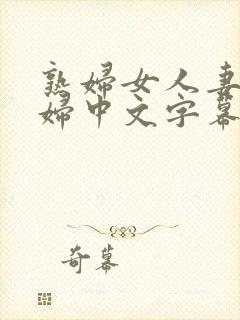 熟婦女人妻
婦中文字幕
奇幕